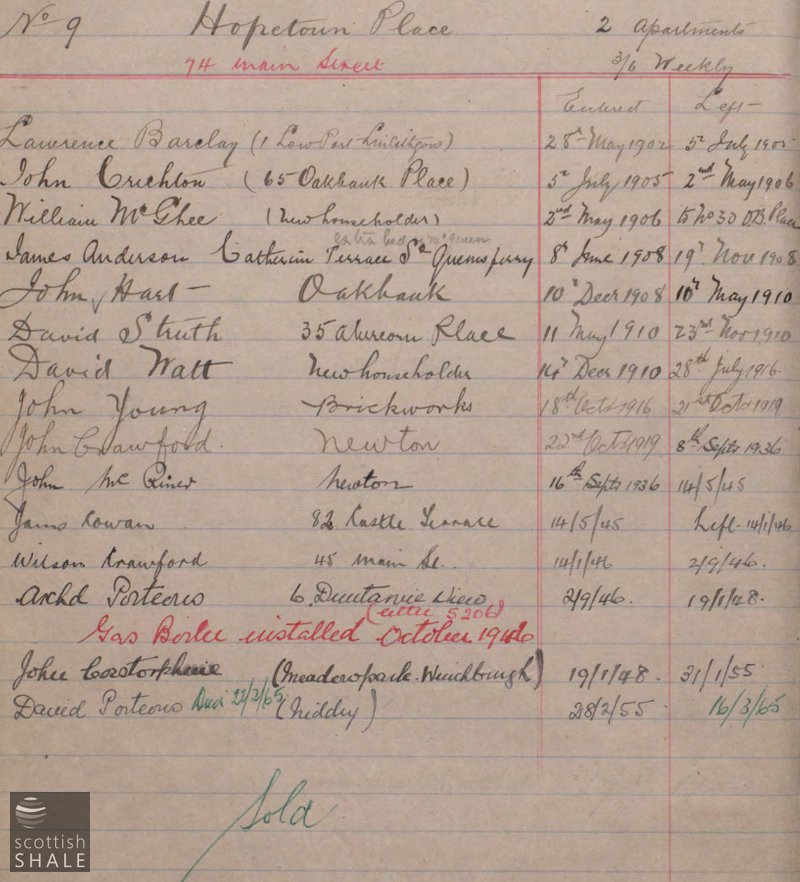 No 9 Hopetoun Place 2 Apartments
74 Main Street 3/6 Weekly
Entered Left
Lawrence Barclay (1 Low Port Linlithgow) 28th May 1902 5th July 1905
John Crichton (65 Oakbank Place) 5th July 1905 2nd May 1906
William McGhee (New householder) 2nd May 1906 To No 30 O.B. Place
extra bed
James Anderson Catherine Terrace Sth Queensferry 8th June 1908 19th Nov 1908
John Hart Oakbank 10th Decr 1908 10th May 1910
David Struth 35 Abercorn Place 11 May 1910 23rd Nov 1910
David Watt New householder 14th Decr 1910 28th July 1916
John Young Brickworks 18th Octr 1916 21st Octr 1919
John Crawford. Newton 22nd Octr 1919 8th Septr 1936
John Mc Newton 16th Septr 1936 14/5/45
James Cowan 82 Castle Terrace 14/5/45 Left 14/1/46
Wilson Crawford 45 Main St.. 14/1/46 2/9/46.
Archd Porteous 6. Duntarvie View 2/9/46. 19/1/48.
(letter 5206)
Gas Boiler installed October 1946
John Corstorphine (Meadowpark. Winchburgh) 19/1/48. 31/1/55.
David Porteous Died 22/2/65. (Niddry) 28/2/55 16/3/65
Sold
scottish
SHALE